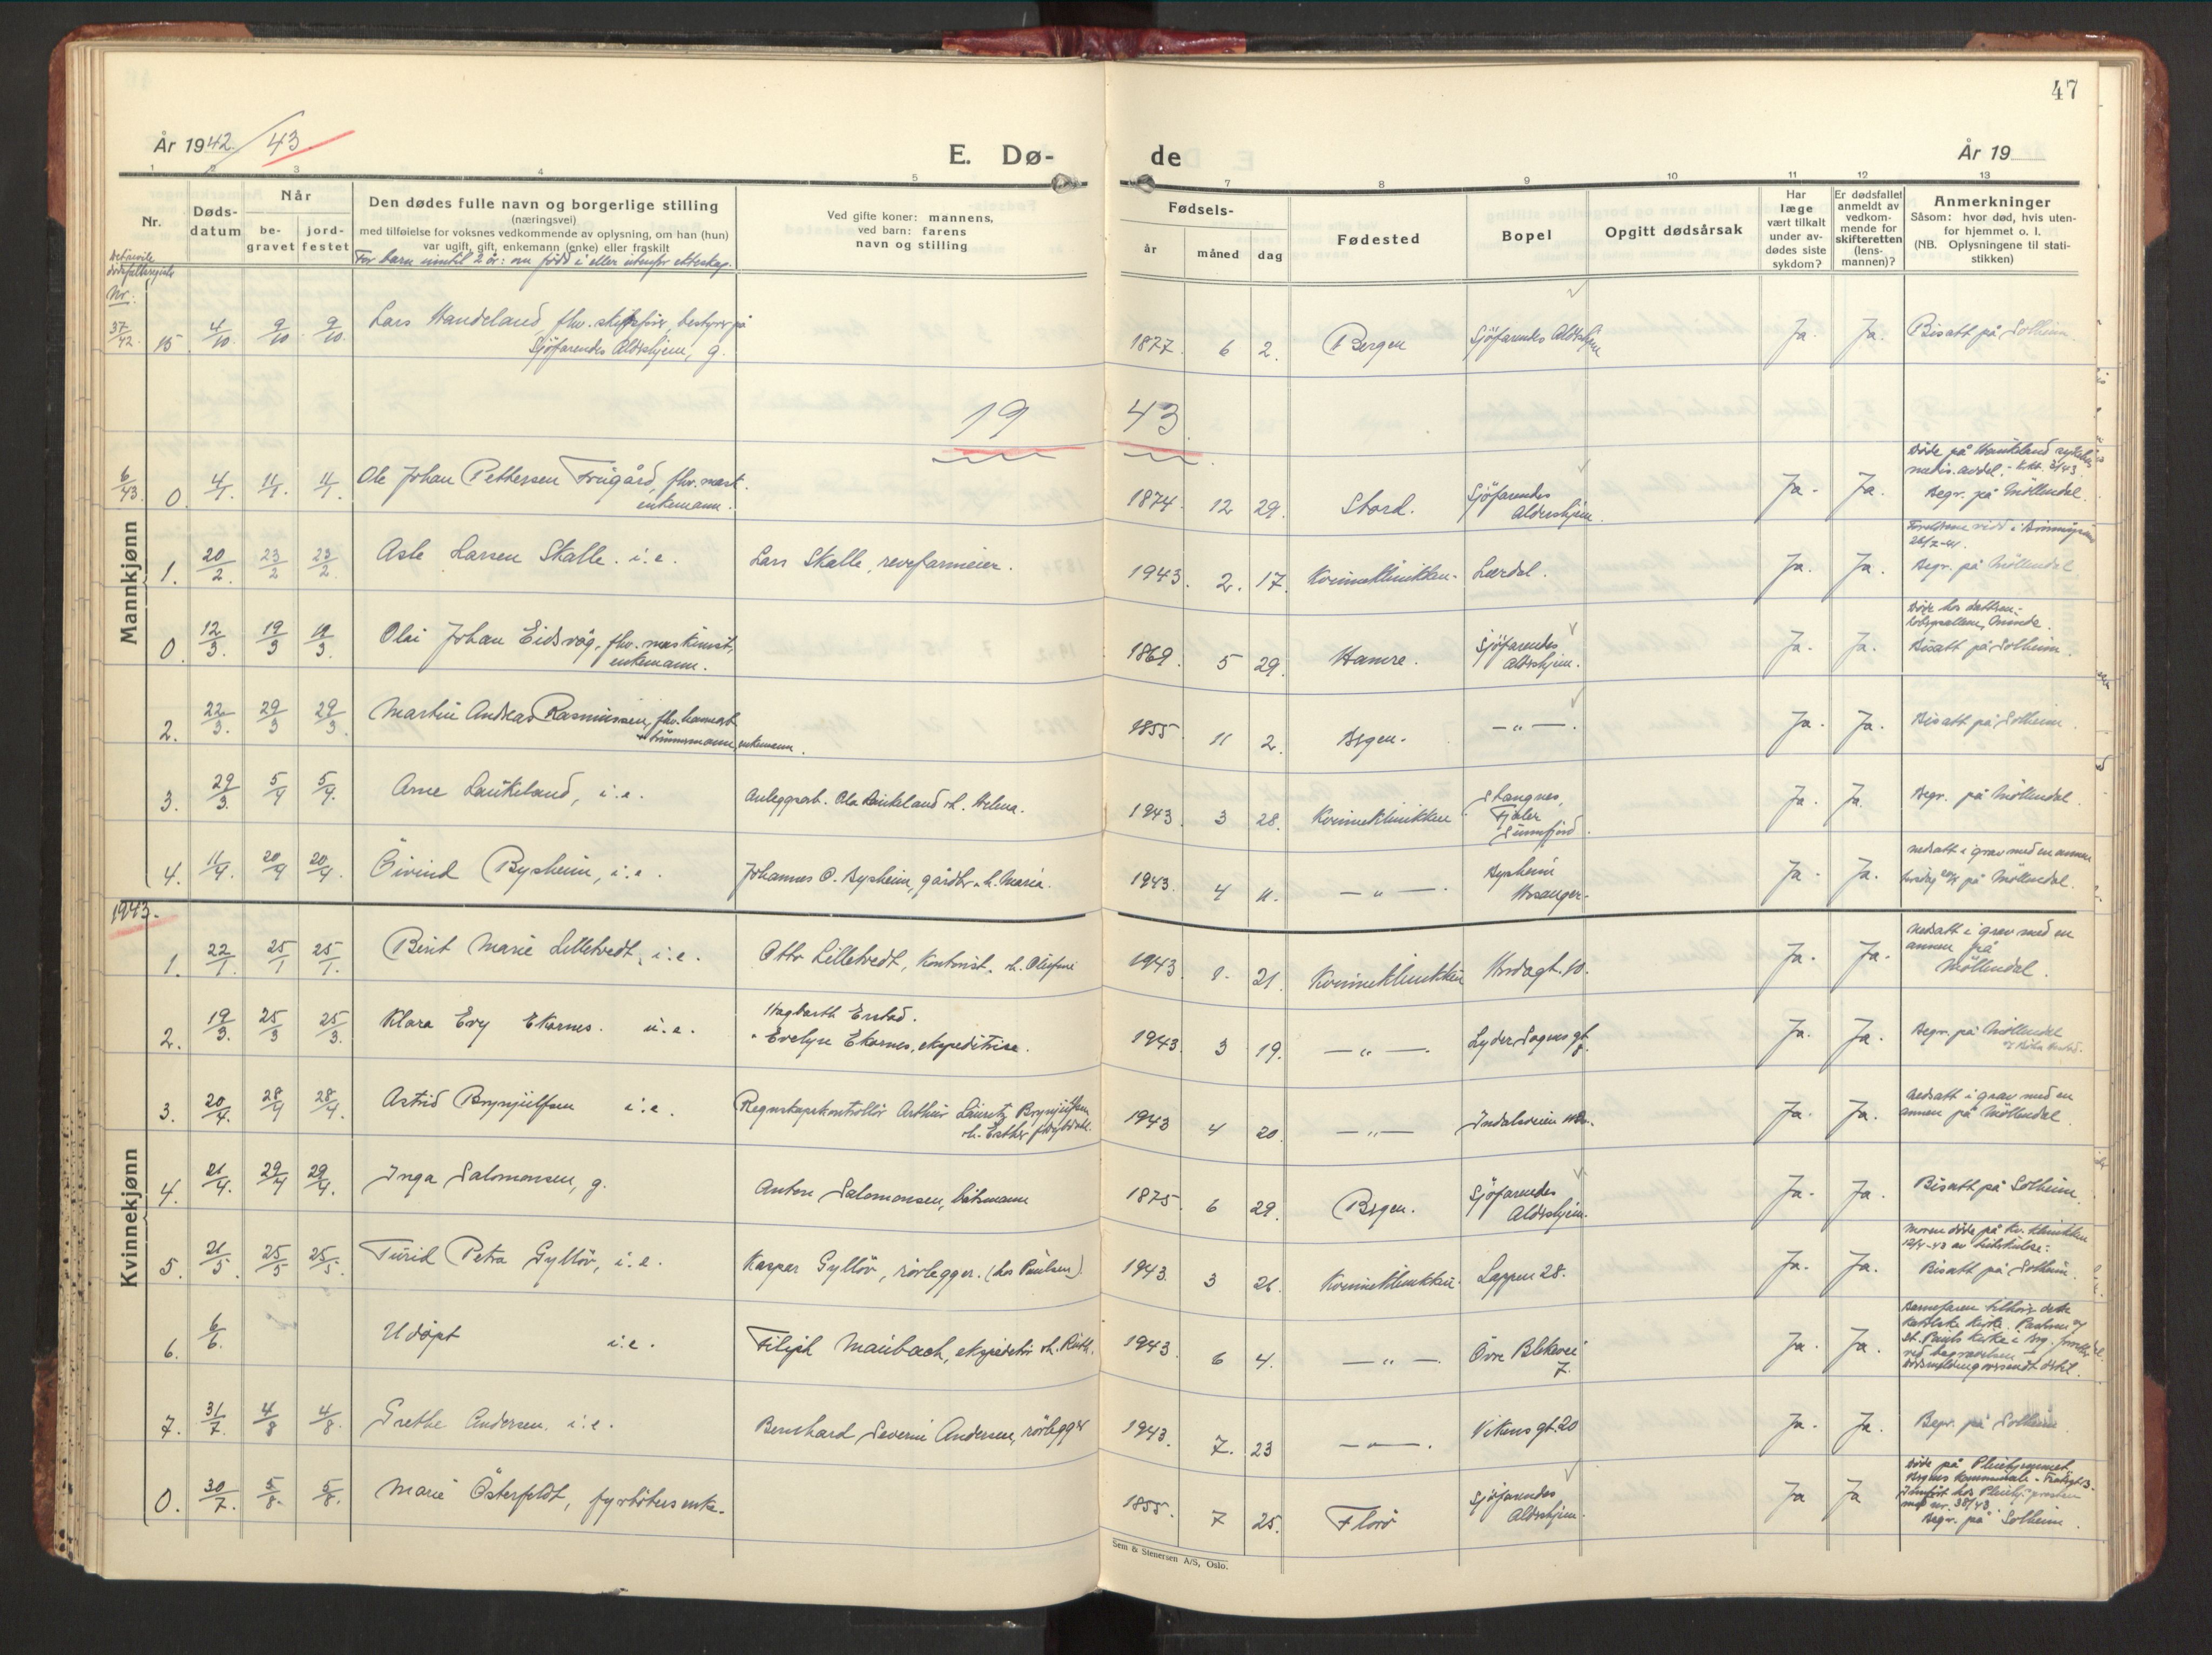 47
År 1942/43
E. Dø-
de
År 19
1 2 3 4 5 7 8 9 10 11 12 13
Nr.
Døds-
datum
Når
be-
gravet
jord-
festet
Den dødes fulle navn og borgerlige stilling
(næringsvei)
med tilføielse for voksnes vedkommende av oplysning, om han (hun)
var ugift, gift, enkemann (enke) eller fraskilt
For barn inntil 2 år: om født i eller utenfor ekteskap.
Ved gifte koner: mannens,
ved barn: farens
navn og stilling
Fødsels-
år måned dag
Fødested
Bopel
Opgitt dødsårsak
Har
læge
vært tilkalt
under av-
dødes siste
sykdom?
Er dødsfallet
anmeldt av
vedkom-
mende for
skifteretten
(lens-
mannen)?
Anmerkninger
Såsom: hvor død, hvis uten-
for hjemmet o. l.
(NB. Oplysningene til stati-
stikken)
Nr.
37/42. 15 4/10. 9/10. 9/10. Lars Handeland, fhv. skibsfører, bestyrer på
Sjöfarendes Aldershjem, g.
1877. 6 2. Bergen Sjöfarendes Aldershjem Ja. Ja. Bisatt på Solheim.
19 43.
6/43. 0. 4/1. 11/1. 11/1. Ole Johan Pettersen
enkemann.
1874. 12 29. Stord. Sjöfarendes
Aldershjem. Ja. Ja. Begr. på Möllendal.
Mannkjønn
1. 20/2. 23/2 23/2. Asle Larsen Skalle. i.e. Lars Skalle, revefarmeier.
1943. 2. 17. Kvinneklinikken. Lærdal. Ja. Ja. Begr. på Möllendal
0. 12/3. 19/3 19/3. Olai Johan Eidsvåg, fhv. maskinist,
enkemann.
1869. 5 29. Hamre. Sjöfarendes
Aldershjem. Ja. Ja. Bisatt på Solheim.
2. 22/3. 29/3 29/3. Martin Andreas Rasmussen, fhv.
enkemann.
1855. 11 2. Bergen. — „ —. Ja. Ja. Bisatt på Solheim.
3. 29/3. 5/4 5/4. Arne Laukeland, i.e. Anleggsarb. Ola Laukeland o.h. Helena.
1943. 3 28. Kvinneklinikken Stangnes,
Fjaler
Sunnfjord. Ja. Ja. Begr. på Möllendal.
4. 11/4. 20/4 20/4. Öivind Bysheim, i.e. Johannes O. Bysheim, gårdbr. o.h. Maria.
1943. 4 11. — „ —. Bysheim
Hosanger. Ja. Ja. nedsatt i grav med en annen
tirsdag 20/4 på Möllendal.
1943.
Kvinnekjønn
1. 22/1. 25/1 25/1. Berit Marie Lilletvedt, i.e. Otto Lilletvedt, kontorist.
1943. 1. 21. Kvinneklinikken Ja. Ja. nedsatt i grav med en
annen på
Möllendal.
2. 19/3. 25/3 25/3. Klara Evy Ekornes. u.e. Hagbarth Erstad.
Evelyn Ekornes, ekspeditrise.
1943. 3 19. — „ —. Lyder Sagens gt. Ja. Ja. Begr. på Möllendal
3. 20/4. 28/4 28/4. Astrid Brynjulfsen i.e. Regnskapskontrollör Arthur Lauritz Brynjulfsen
o.h. Esther
1943 4 20. — „ — Indalsveien Ja. Ja. nedsatt i grav med en
annen på Möllendal.
4. 21/4. 29/4 29/4. Inga Salomonsen, g. Anton Salomonsen, båtsmann
1875. 6 29. Bergen. Sjöfarendes
Aldershjem. Ja. Ja. Bisatt på Solheim.
5. 21/5. 25/5 25/5. Turid Petra Gyllöv, i.e. Kasper Gyllöv, rörlegger. (hos Paulsen)
1943. 3 26. Kvinneklinikken. Lappen 28. Ja. Ja. Moren döde på Kv. klinikken
12/4-43 av tuberkulose.
Bisatt på Solheim.
6. 6/6. Udöpt i.e. Filiph Maubach, ekspeditör o.h. Ruth.
1943. 6 4. — „ —. Övre Blekevei
7. Ja. Ja. Barnefaren tilhörer den
katolske kirke.
St. Pauls kirke i Brg.
ved begravelsen
7. 31/7. 4/8 4/8. Grethe Andersen. i.e. Bernhard Severin Andersen, rörlegger
1943. 7. 23 — „ —. Vikens gt. 20 Ja. Ja. Begr. på Solheim.
0. 30/7. 5/8. 5/8. Marie Österfeldt, fyrböters enke.
1855. 7 25. Florö Sjöfarendes
Aldershjem. Ja Ja Döde på Pleiehjemmet,
Begr. på Solheim.
Sem & Stenersen A/S, Oslo.